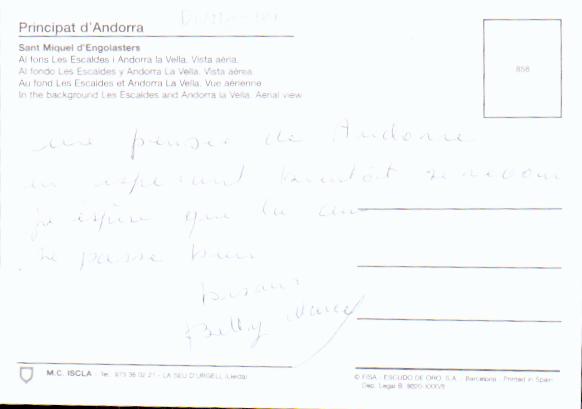 Principat d'Andorra
Sant Miquel d'Engolasters
Al fons Les Escaldes i Andorra la Vella. Vista aèria.
Al fondo Les Escaldes y Andorra La Vella. Vista aérea.
Au fond Les Escaldes et Andorra La Vella. Vue aérienne.
In the background Les Escaldes and Andorra la Vella. Aerial view
858
une pensée de Andorre
en espérant bientôt se revoir
J'espère que la
Se passe bien
Betty
M.C. ISCLA - Tel. 973 36 02 21 - LA SEU D'URGELL (Lleida)
© FISA - ESCUDO DE ORO, S.A. - Barcelona - Printed in Spain
Dep. Legal B.